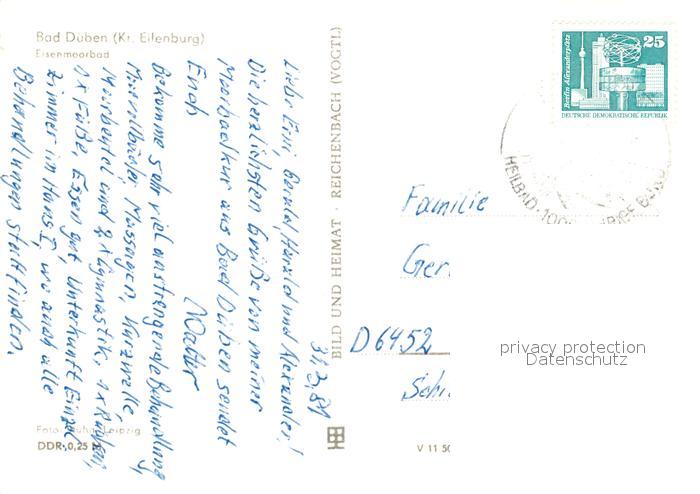 Bad Düben (Kr. Eilenburg)
Eisenmoorbad
31.3.81
Liebe Erni, Harald und Alexander!
Die herzlichsten Grüße von meiner
Moorbadkur aus Bad Düben sendet
Euch
Walter
Bekomme sehr viel anstrengende Behandlung,
Massagen, Kurzwelle,
Moorbeutel und 2x Gymnastik, 1x Rücken,
1x Füße, Essen gut, Unterkunft Einzel
zimmer im Haus I, wo auch alle
Behandlungen stattfinden.
Foto: Leipzig
DDR 0,25 M
BILD UND HEIMAT · REICHENBACH (VOGTL)
V 11 50
Berlin, Alexanderplatz
25
DEUTSCHE DEMOKRATISCHE REPUBLIK
HEILBAD
Familie
Ger
D 6452
Sch
privacy protection
Datenschutz